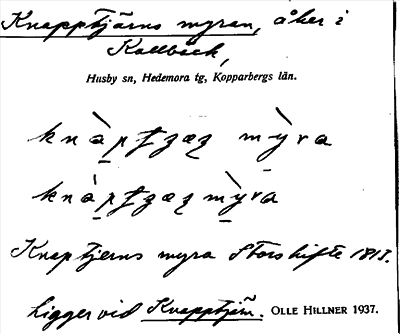 Knapptjärns myran, åker i
Kallbäck,
Husby sn, Hedemora tg, Kopparbergs län.
myra
myra
Knaptjerns myra Storskifte 1813.
Ligger vid Knapptjärn. OLLE HILLNER 1937.